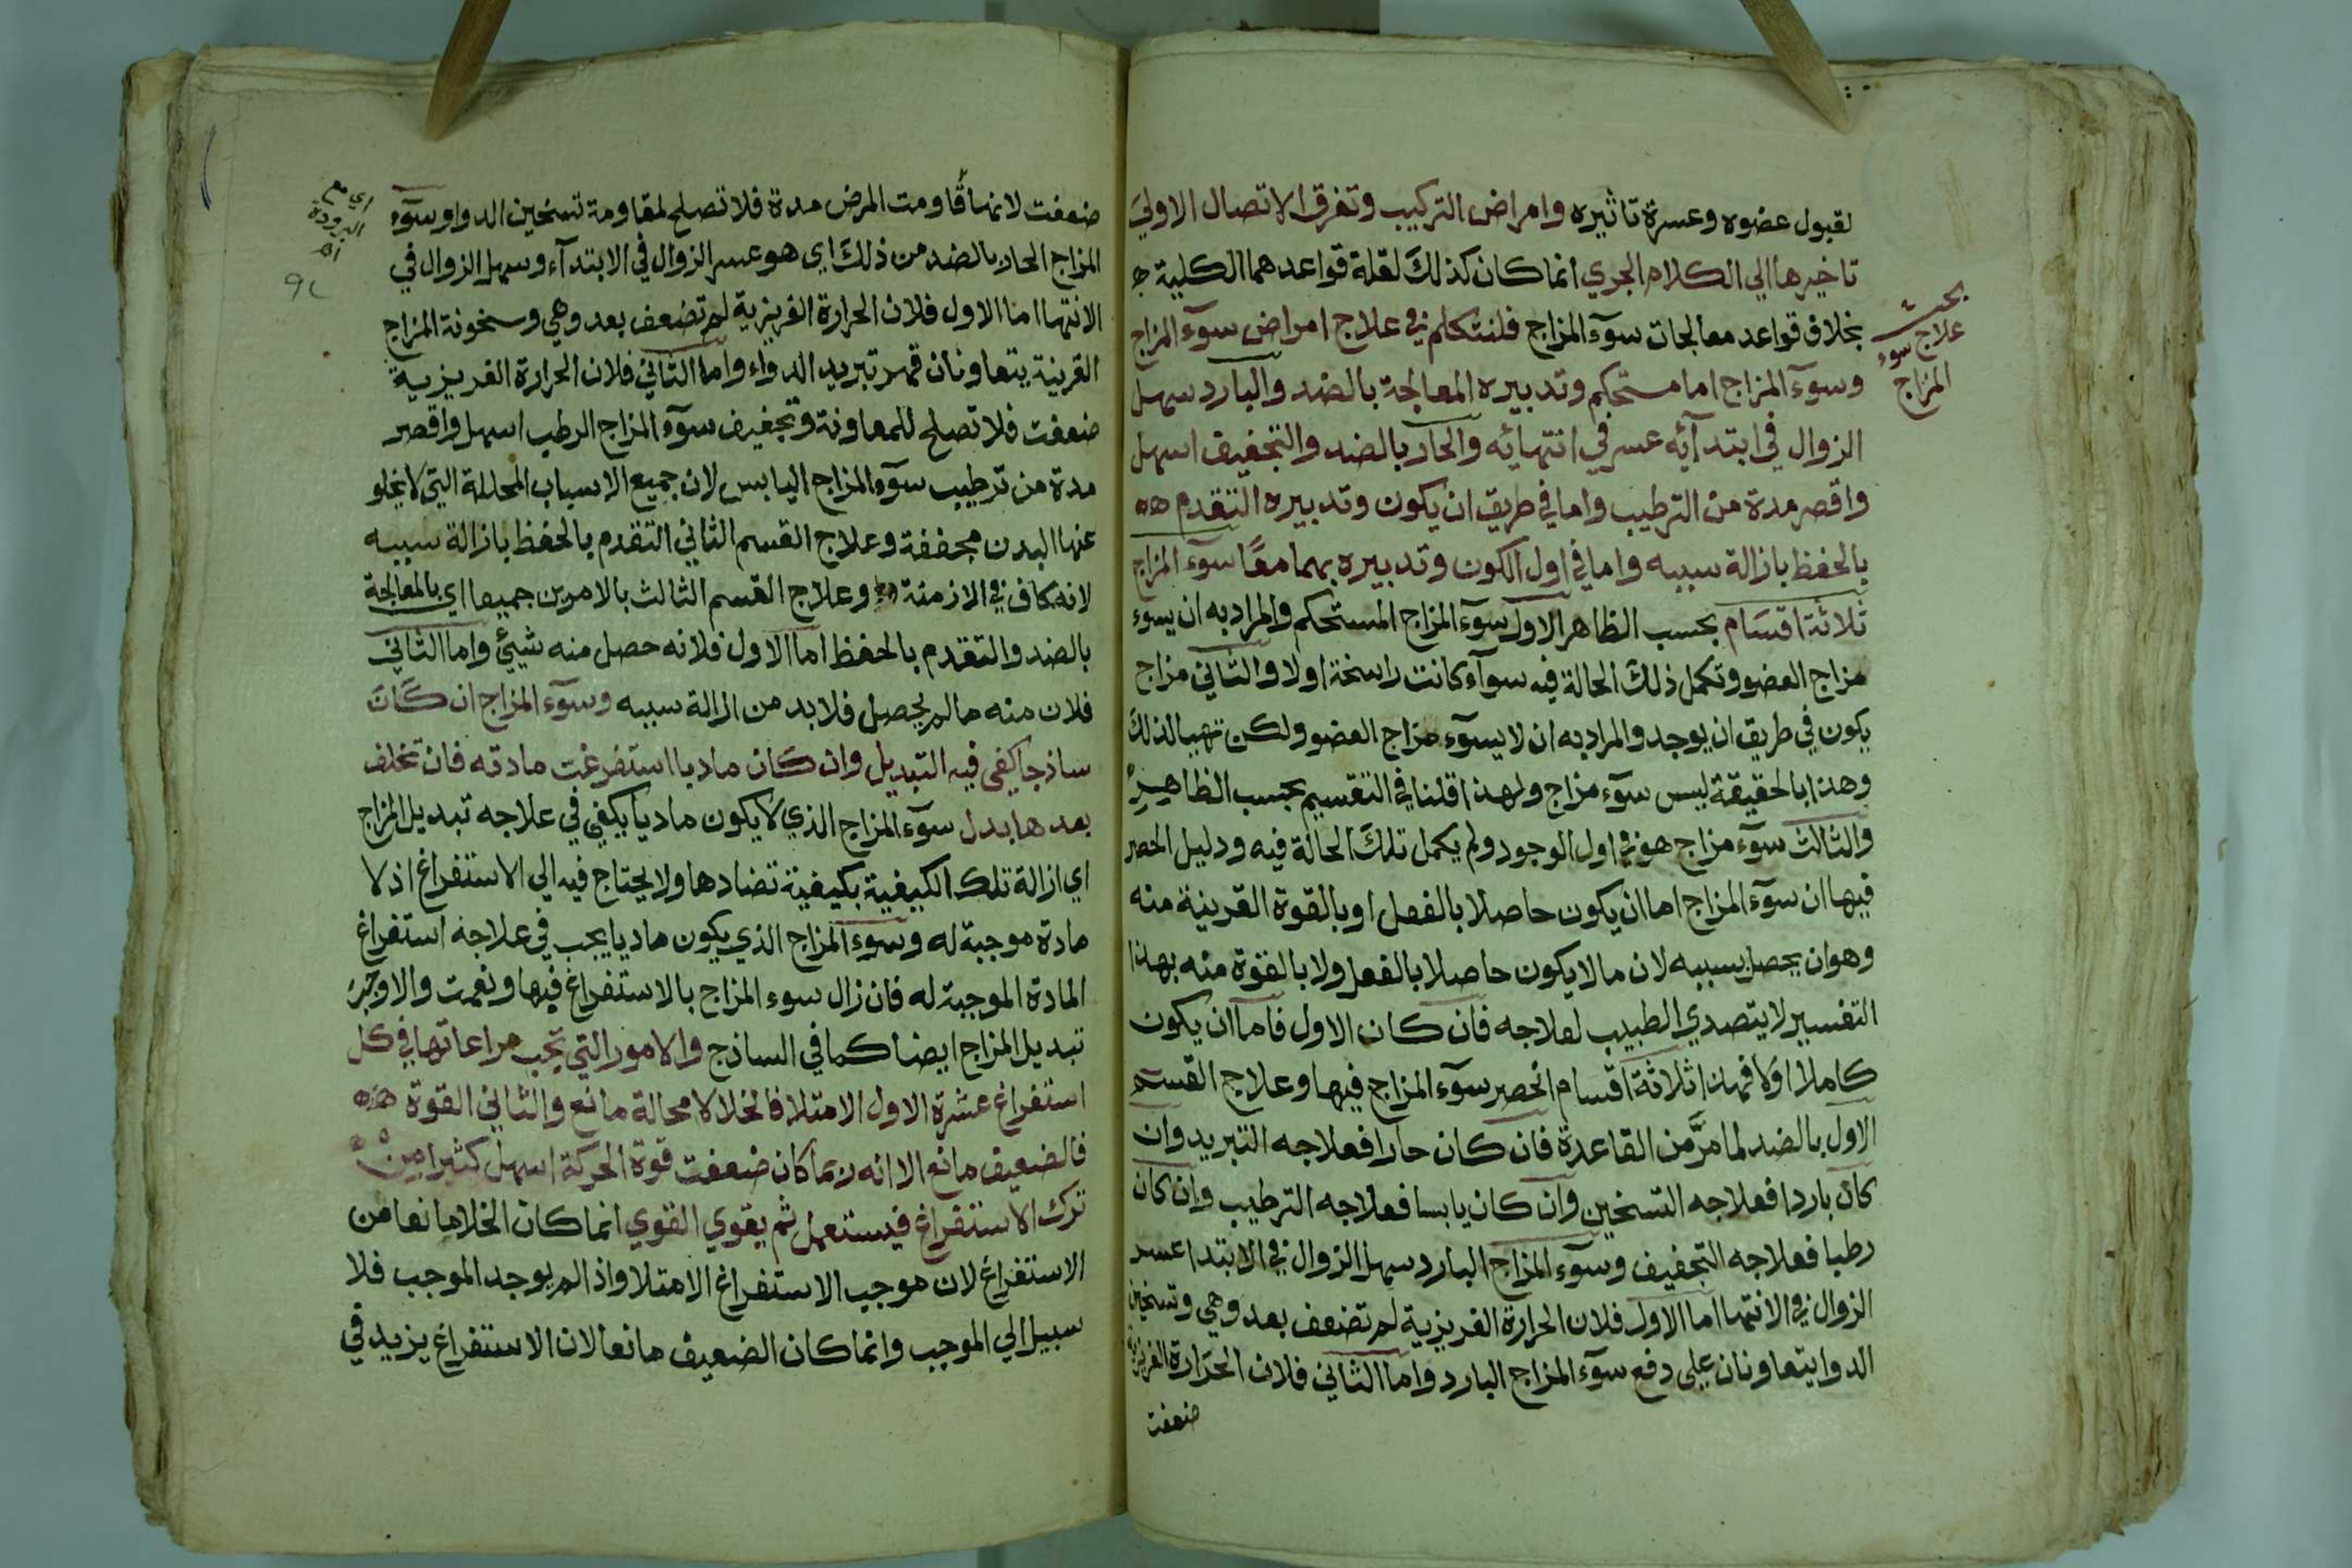 لقبول عضوه وعسرة تاثيره وامراض التركيب وتفرق الاتصال الاولي
تاخيرها الي الكلام الجزي انما كان كذلك لقلة قواعدهما الكلية
بخلاف قواعد معالجات سوء المزاج فلنتكلم في علاج امراض سوء المزاج
بحث
علاج سوء
المزاج
وسوء المزاج اما مستحكم وتدبيره المعالجة بالضد والبارد سهل
الزوال في ابتدائه عسر في انتهائه والحار بالضد والتجفيف اسهل
واقصر مدة من الترطيب واما في طريق ان يكون وتدبيره التقدم
بالحفظ بازالة سببه واما في اول الكون وتدبيره بهما معًا سوء المزاج
ثلاثة اقسام بحسب الظاهر الاول سوء المزاج المستحكم والمراد به ان يسوء
مزاج العضو وتكمل ذلك الحالة فيه سواء كانت راسخة اولا والثاني مزاج
يكون في طريق ان يوجد والمراد به ان لا يسوء مزاج العضو ولكن تهيا لذلك
وهذا بالحقيقة ليس سوء مزاج ولهذا قلنا في التقسيم بحسب الظاهر
والثالث سوء مزاج هو في اول الوجود ولم يكمل تلك الحالة فيه ودليل الحصر
فيها ان سوء المزاج اما ان يكون حاصلا بالفعل او بالقوة القرينة منه
وهو ان يحصل بسببه لان ما لا يكون حاصلا بالفعل ولا بالقوة منه بهذا
التفسير لا يتصدي الطبيب لعلاجه فان كان الاول فاما ان يكون
كاملا اولا فهذا ثلاثة اقسام انحصر سوء المزاج فيها وعلاج القسم
الاول بالضد لما مرّ من القاعدة فان كان حارا فعلاجه التبريد وان
كان باردا فعلاجه التسخين وان كان يابسا فعلاجه الترطيب وان كان
رطبا فعلاجه التجفيف وسوء المزاج البارد سهل الزوال في الابتدا عسر
الزوال في الانتها اما الاول فلان الحرارة الغريزية لم تضعف بعد وهي وتسخين
الدوا يتعاونان علي دفع سوء المزاج البارد واما الثاني فلان الحرارة الغريزية
ضعفت
ضعفت لانها قاومت المرض مدة فلا تصلح لمقاومة تسخين الدوا وسوء
اي
البرودة
اه
٩٢
المزاج الحار بالضد من ذلك اي هو عسر الزوال في الابتداء وسهل الزوال في
الانتها اما الاول فلان الحرارة الغريزية لم تضعف بعد وهي وسخونة المزاج
القرينة يتعاونان قهر تبريد الدواء واما الثاني فلان الحرارة الغريزية
ضعفت فلا تصلح للمعاونة وتجفيف سوء المزاج الرطب اسهل واقصر
مدة من ترطيب سوء المزاج اليابس لان جميع الاسباب المحللة التي لا يخلو
عنها البدن مجففة وعلاج القسم الثاني التقدم بالحفظ بازالة سببه
لانه كاف في الازمنة وعلاج القسم الثالث بالامرين جميعا اي بالمعالجة
بالضد والتقدم بالحفظ اما الاول فلانه حصل منه شيئ واما الثاني
فلان منه ما لم يحصل فلا بد من ازالة سببه وسوء المزاج ان كان
ساذجا كفي فيه التبديل وان كان ماديا استفرغت مادته فان تخلف
بعدها بدل سوء المزاج الذي لا يكون ماديا يكفي في علاجه تبديل المزاج
اي ازالة تلك الكيفية بكيفية تضادها ولا يحتاج فيه الي الاستفراغ اذ لا
مادة موجبة له وسوء المزاج الذي يكون ماديا يجب في علاجه استفراغ
المادة الموجبة له فان زال سوء المزاج بالاستفراغ فبها ونعمت والا وجب
تبديل المزاج ايضا كما في الساذج والامور التي تجب مراعاتها في كل
استفراغ عشرة الاول الامتلا فالخلا لا محالة مانع والثاني القوة
فالضعيف مانع الا انه ربما كان ضعفت قوة الحركة اسهل كثيرا من
ترك الاستفراغ فيستعمل ثم يقوي القوي انما كان الخلا مانعا من
الاستفراغ لان موجب الاستفراغ الامتلا واذا لم يوجد الموجب فلا
سبيل الي الموجب وانما كان الضعيف مانعا لان الاستفراغ يزيد في